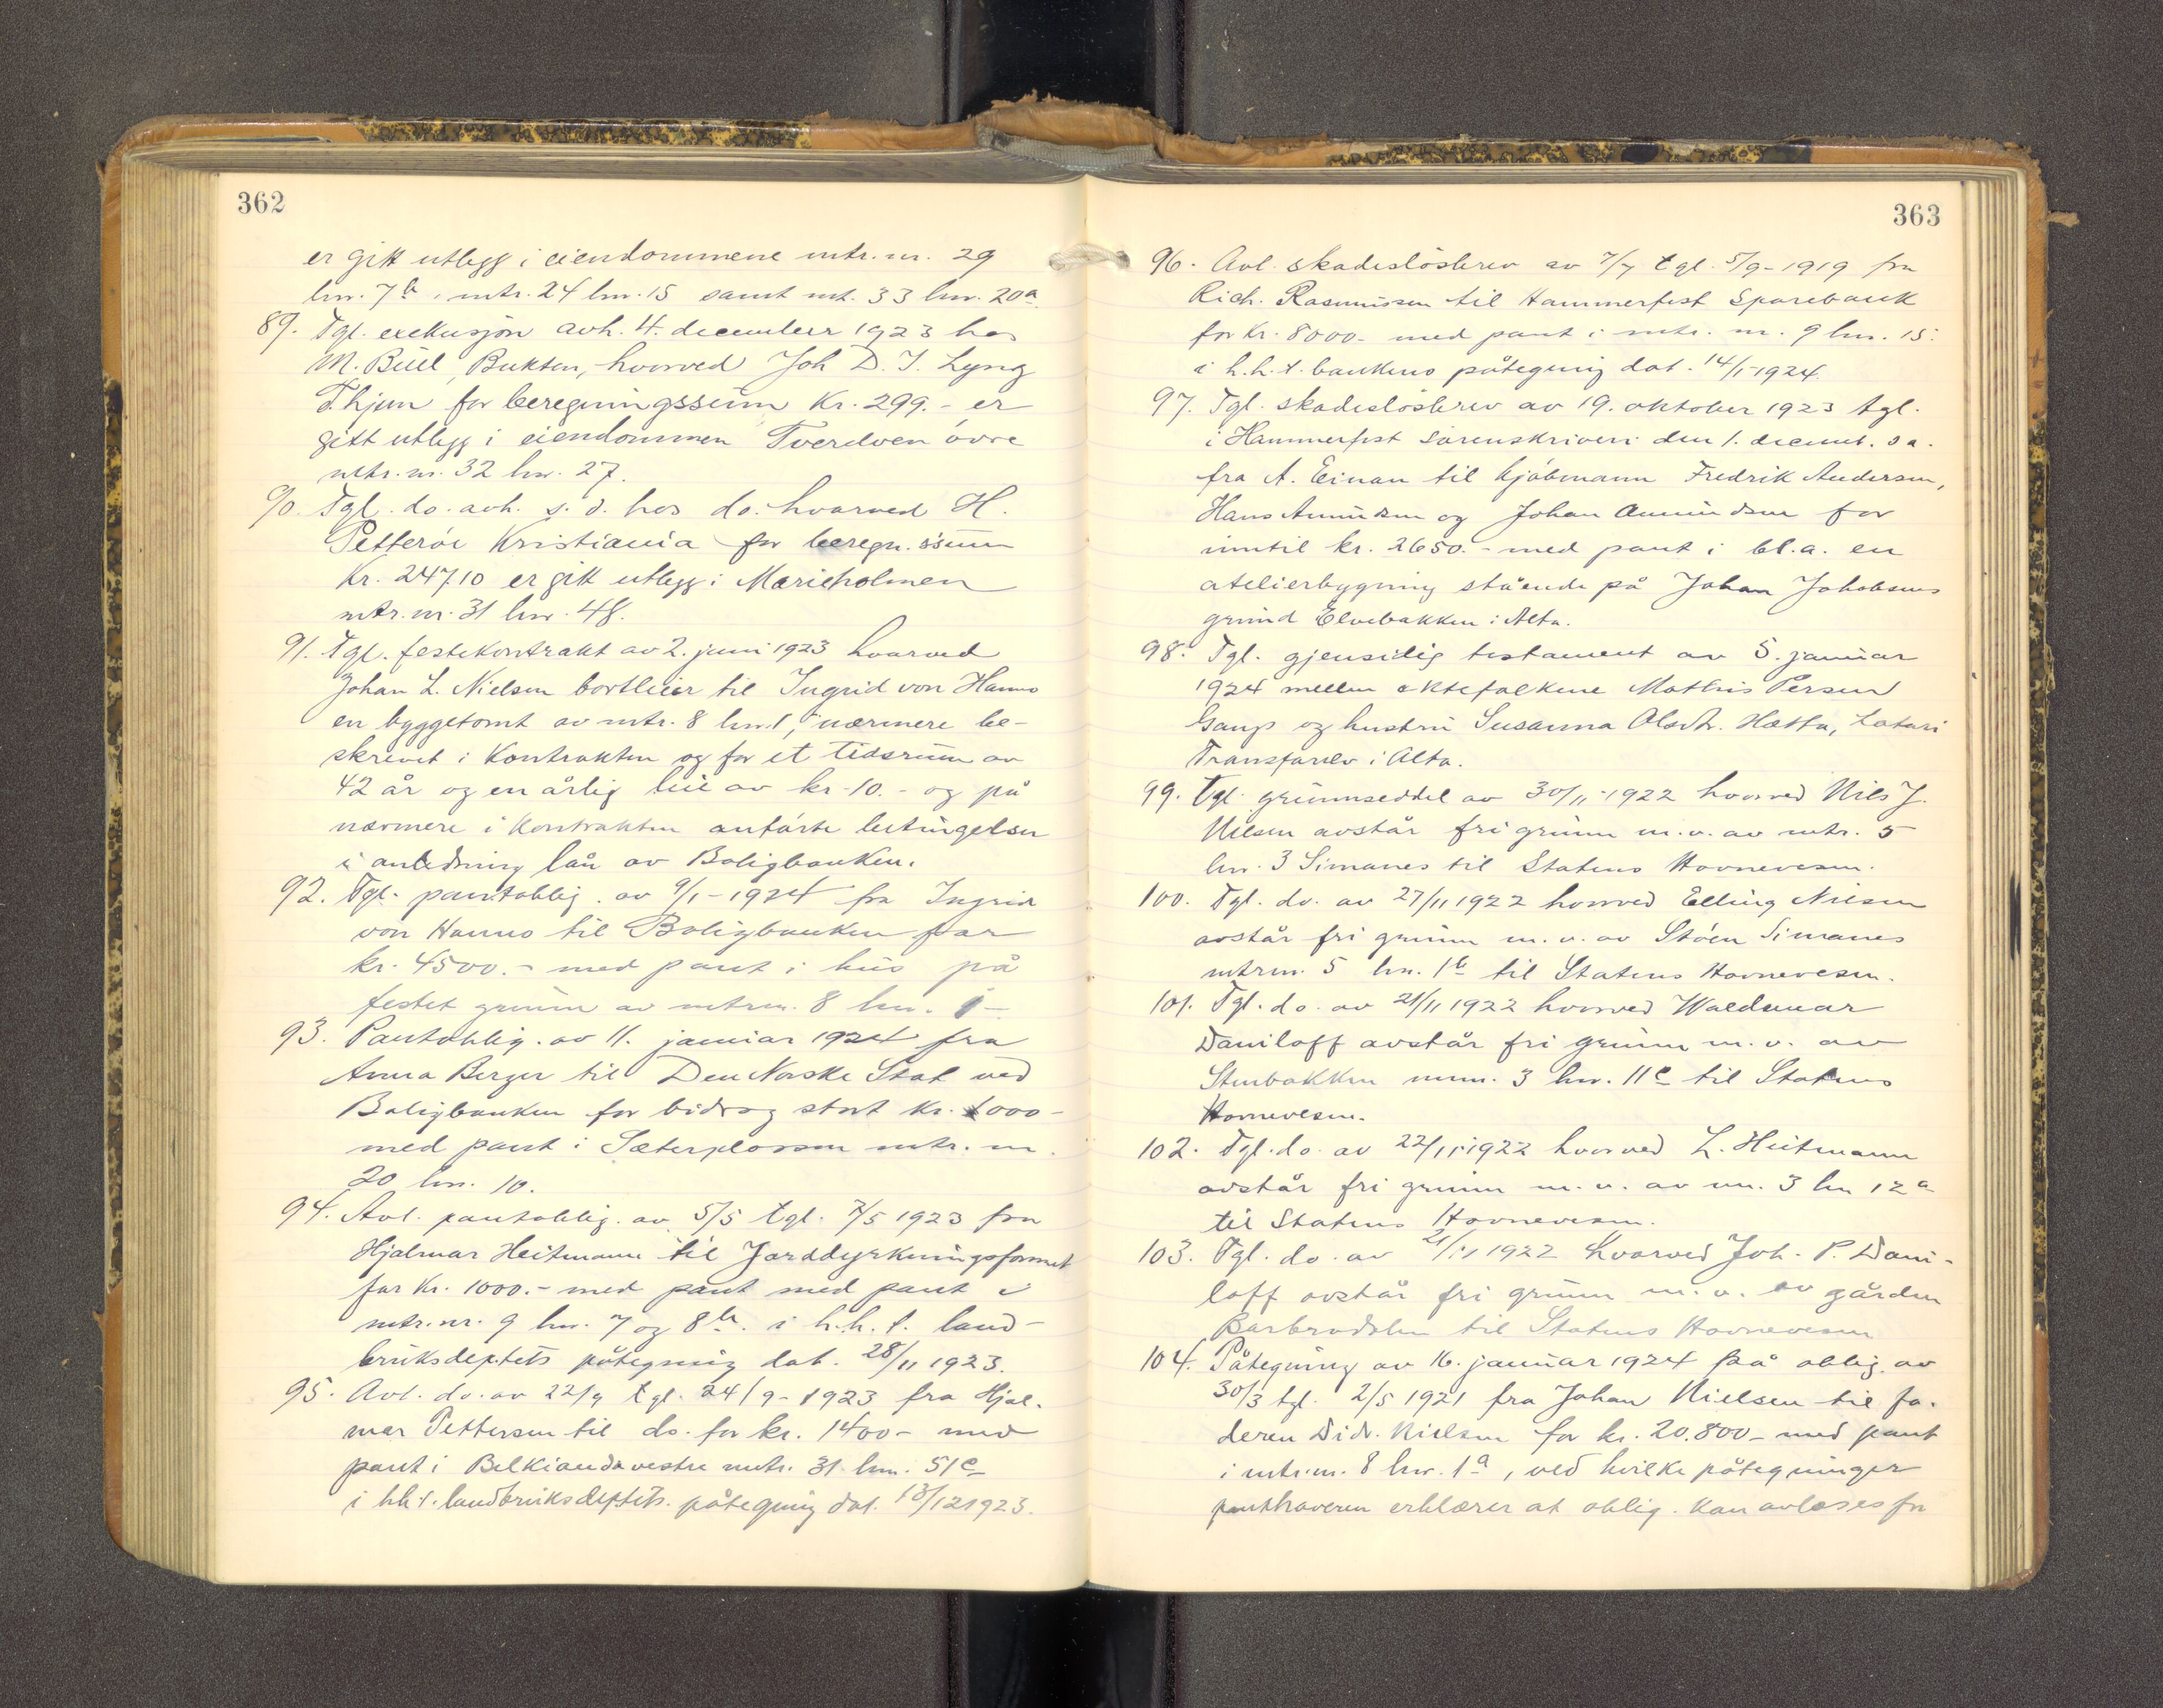 362
er gitt utlegg i eiendommene mtr. nr. 29
lnr. 7b, mtr. 24 lnr. 15 samt mt. 33 lnr. 20a
89. Tgl. exekusjon avh. 4. december 1923 hos
M. Buel, Bukten, hvorved Joh D. I. Lyng
Thjem for beregningssum Kr. 299.- er
gitt utlegg i eiendommen Tverelven övre
mtr. nr. 32 lnr. 27.
90. Tgl. do. avh. s. d. hos do. hvorved H.
Petteröe Kristiania for beregn. sum
Kr. 247.10 er gitt utlegg i Marieholmen
mtr. nr. 31 lnr. 48.
91. Tgl. festekontrakt av 2. juni 1923 hvorved
Johan L. Nielsen bortleier til Ingrid von Hanno
en byggetomt av mtr. 8 lnr. 1, nærmere be-
skrevet i Kontrakten og for et tidsrum av
42 år og en årlig leie av kr. 10.- og på
nærmere i Kontrakten anförte betingelser
i anledning lån av Boligbanken.
92. Tgl. pantoblig. av 9/1-1924 fra Ingrid
von Hanno til Boligbanken for
kr. 4500.- med pant i hus på
festet grunn av mtrnr. 8 lnr. 1-
93. Pantoblig. av 11. januar 1924 fra
Anna Berger til Den Norske Stat ved
Boligbanken for bidrag stort kr. 1000-
med pant i Sæterplassen mtr. nr.
20 lnr. 10.
94. Avl. pantoblig. av 5/5 tgl. 7/5 1923 fra
Hjalmar Heitmann til Jorddyrkningsfonnet
for Kr. 1000.- med pant med pant i
mtr. nr. 9 lnr. 7 og 8b. i h.h.t. land-
bruksdeptets påtegning dat. 28/11 1923.
95. Avl. do. av 22/9 tgl. 24/9-1923 fra Hjal-
mar Pettersen til do. for kr. 1400- med
pant i Belkiandavestre mtr. 31 lnr. 51c
i hht. landbruksdeptets. påtegning dat. 13/12 1923.
363
96. Avl. skadeslösbrev av 7/7 tgl. 5/9-1919 fra
Rich. Rasmussen til Hammerfest Sparebank
for kr. 8000- med pant i mtr. nr. 9 lnr. 15.
i h.h.t. bankens påtegning dat. 14/1-1924.
97. Tgl. skadeslösbrev av 19. oktober 1923 tgl.
i Hammerfest sörenskriveri den 1. decemb. s a.
fra A. Einan til kjöbmann Fredrik Andersen,
Hans Amundsen og Johan Amundsen for
inntil kr. 2650.- med pant i bl.a. en
atelierbygning stående på Johan Jakobsens
grund Elvebakken i Alta.
98. Tgl. gjensidig testament av 5. januar
1924 mellem ektefolkene Mathis Persen
Gaup og hustru Susanna Olsdtr. Hætta, Latari
Transfarelv i Alta.
99. Tgl. grunnseddel av 30/11-1922 hvorved Nils J.
Nilsen avstår fri grunn m.v. av mtr. 5
lnr. 3 Simanes til Statens Havnevesen.
100. Tgl. do. av 27/11 1922 hvorved Elling Nilsen
avstår fri grunn m.v. av Stöen Simanes
mtrnr. 5 lnr. 1b til Statens Havnevesen.
101. Tgl. do. av 21/11 1922 hvorved Waldemar
Daniloff avstår fri grunn m.v. av
Stenbakken mnr. 3 lnr. 11c til Statens
Havnevesen.
102. Tgl. do. av 22/11 1922 hvorved L. Heitmann
avstår fri grunn m.v. av mn. 3 ln 12a
til Statens Havnevesen.
103. Tgl. do. av 21/11 1922 hvorved Joh. P. Dani-
loff avstår fri grunn m.v. av gården
Barbrodalen til Statens Havnevesen
104. Påtegning av 16. januar 1924 på oblig. av
30/3 tgl. 2/5 1921 fra Johan Nielsen til fa-
deren Didr. Nielsen for kr. 20.800- med pant
i mtr.nr. 8 lnr. 1a, ved hvilke påtegninger
panthaveren erklærer at oblig. kan avlæses for